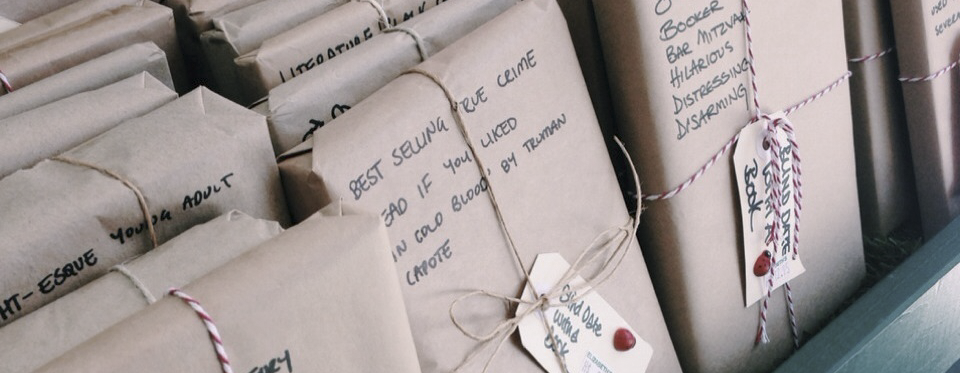 LITERATURE
BEST SELLING TRUE CRIME
READ IF YOU LIKED
IN COLD BLOOD, BY TRUMAN
CAPOTE
Blind Date
with a
Book
BOOKER
BAR MITZVAH
HILARIOUS
DISTRESSING
DISARMING
BLIND DATE
WITH A
BOOK
HT-ESQUE YOUNG ADULT